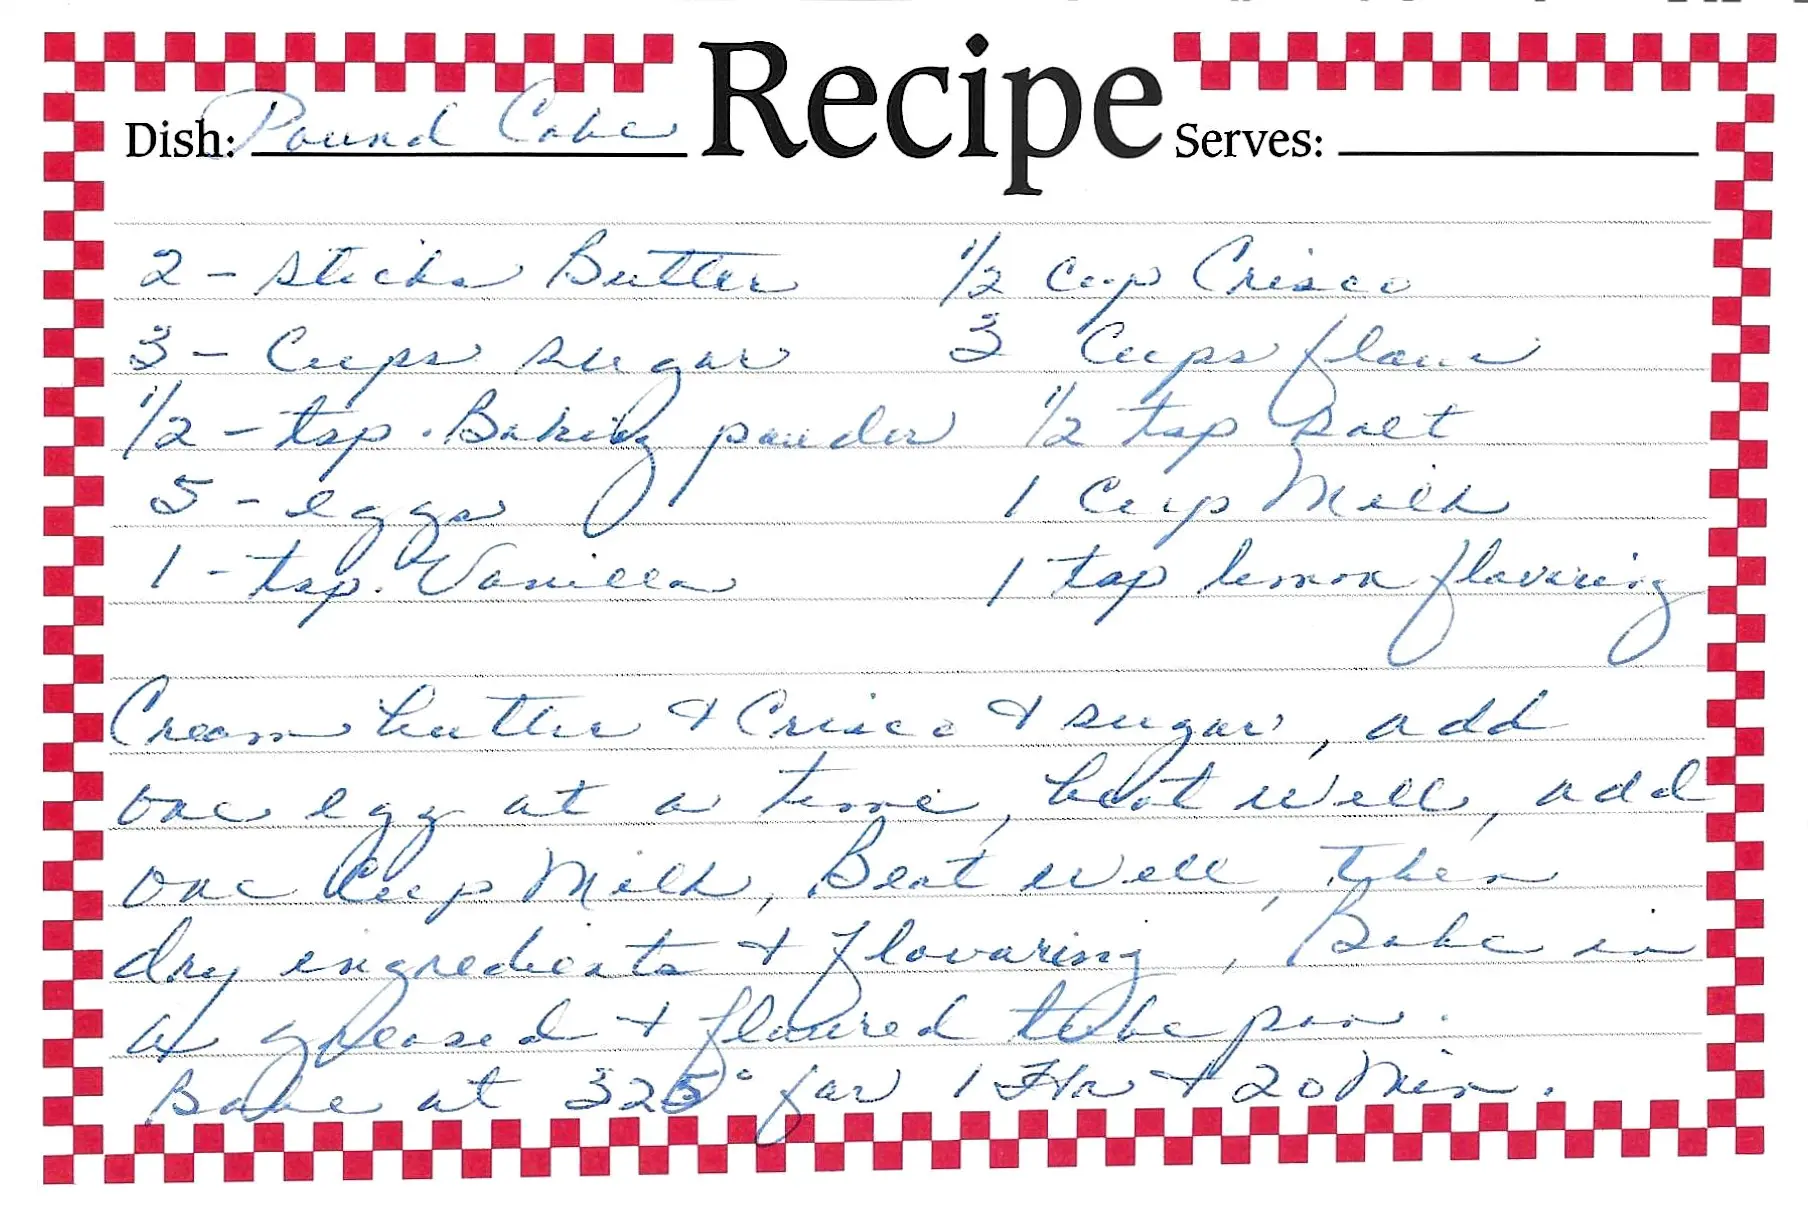 Recipe
Dish: Pound Cake Serves:
2 - sticks Butter 1/2 cup Crisco
3 - Cups sugar 3 Cups flour
1/2 - tsp. Baking powder 1/2 tsp salt
5 - eggs 1 Cup Milk
1 - tsp. Vanilla 1 tsp lemon flavoring
Cream butter & Crisco & sugar, add
one egg at a time, beat well, add
one Cup Milk, Beat well, then
dry ingredients & flavoring, Bake in
a greased & floured tube pan.
Bake at 325° for 1 Hr & 20 Min.